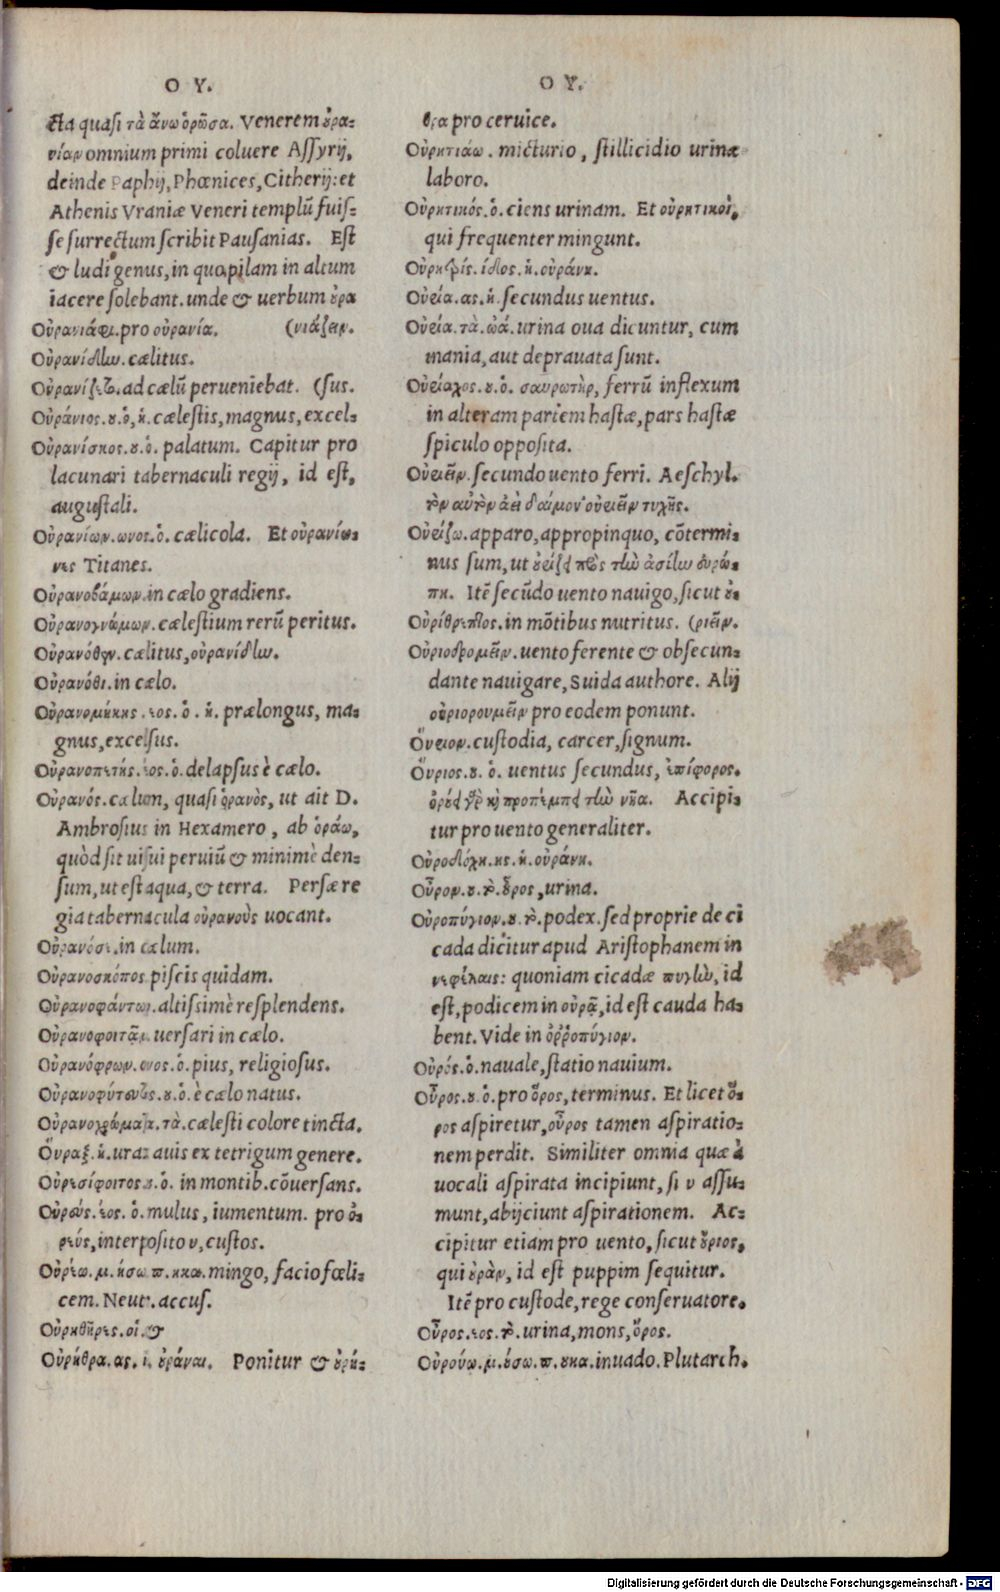 O Y.
cta quasi τὰ ἄνω ὁρῶσα. Venerem ȣ̓ρα-
νίαν omnium primi coluere Assyrij,
deinde Paphij, Phœnices, Citherij: et
Athenis Vraniæ Veneri templũ fuis-
se surrectum scribit Pausanias. Est
& ludi genus, in quo pilam in altum
iacere solebant. unde & uerbum ȣ̓ρα
Οὐρανιάφι. pro οὐρανία. (νιάζειν.
Οὐρανίδην. cælitus.
Οὐρανίζετο. ad cælũ perueniebat. (sus.
Οὐράνιος. ȣ. ὁ, ἡ. cælestis, magnus, excel-
Οὐρανίσκος. ȣ. ὁ. palatum. Capitur pro
lacunari tabernaculi regij, id est,
augustali.
Οὐρανίων. ωνος. ὁ. cælicola. Et οὐρανίω-
νες Titanes.
Οὐρανοβάμων. in cælo gradiens.
Οὐρανογνώμων. cælestium rerũ peritus.
Οὐρανόθεν. cælitus, οὐρανίδην.
Οὐρανόθι. in cælo.
Οὐρανομήκης. εος. ὁ. ἡ. prælongus, ma-
gnus, excelsus.
Οὐρανοπετής. έος. ὁ. delapsus è cælo.
Οὐρανός. cælum, quasi ὁρανὸς, ut ait D.
Ambrosius in Hexamero, ab ὁράω,
quòd sit uisui peruiũ & minimè den-
sum, ut est aqua, & terra. Persæ re
gia tabernacula οὐρανοὺς uocant.
Οὐρανόσε. in cælum.
Οὐρανοσκόπος piscis quidam.
Οὐρανοφάντωρ. altissimè resplendens.
Οὐρανοφοιτᾷν. uersari in cælo.
Οὐρανόφρων. ονος. ὁ. pius, religiosus.
Οὐρανοφύτευτος. ȣ. ὁ. è cælo natus.
Οὐρανοχρώματα. τὰ. cælesti colore tincta.
Οὔραξ. ἡ. uraz auis ex tetrigum genere.
Οὐρεσίφοιτος. ȣ. ὁ. in montib. cõuersans.
Οὐρεύς. έος. ὁ. mulus, iumentum. pro ὀ-
ρεύς, interposito υ, custos.
Οὐρέω. μ. ήσω. π. ηκα. mingo, facio fœli-
cem. Neutr. accus.
Οὐρηθῆρες. οἱ. &
Οὐρήθρα. ας. ἡ. ȣ̓ράναι. Ponitur & ȣ̓ρή-
O Y.
θρα pro ceruice.
Οὐρητιάω. micturio, stillicidio urinæ
laboro.
Οὐρητικός. ὁ. ciens urinam. Et οὐρητικοὶ,
qui frequenter mingunt.
Οὐρητρίς. ίδος. ἡ. οὐράνη.
Οὐρία. ας. ἡ. secundus uentus.
Οὐρία. τὰ. ὠά. urina oua dicuntur, cum
inania, aut deprauata sunt.
Οὐρίαχος. ȣ. ὁ. σαυρωτὴρ, ferrũ inflexum
in alteram partem hastæ, pars hastæ
spiculo opposita.
Οὐριεῖν. secundo uento ferri. Aeschyl.
τὸν αὐτὸν ἀεὶ δαίμον' οὐριεῖν τυχῆς.
Οὐρίζω. apparo, appropinquo, cõtermi-
nus sum, ut ȣ̓ρίζει πρὸς τὴν ἀσίην ἐυρώ-
πη. Itẽ secũdo uento nauigo, sicut ȣ̓
Οὐρίθρεπτος. in mõtibus nutritus. (ριεῖν.
Οὐριοδρομεῖν. uento ferente & obsecun-
dante nauigare, Suida authore. Alij
οὐριορουμεῖν pro eodem ponunt.
Οὔριον. custodia, carcer, signum.
Οὔριος. ȣ. ὁ. uentus secundus, ἐπίφορος.
ὀρύει γὰρ καὶ προπέμπει τὴν νῆα. Accipi-
tur pro uento generaliter.
Οὐροδόχη. ης. ἡ. οὐράνη.
Οὖρον. ȣ. τὸ. ȣ̓͂ρος, urina.
Οὐροπύγιον. ȣ. τὸ. podex. sed proprie de ci
cada dicitur apud Aristophanem in
νεφέλαις: quoniam cicadæ πυγὴν, id
est, podicem in οὐρᾷ, id est cauda ha-
bent. Vide in ὀῤῥοπύγιον.
Οὐρός. ὁ. nauale, statio nauium.
Οὖρος. ȣ. ὁ. pro ὅρος, terminus. Et licet ὅ-
ρος aspiretur, οὖρος tamen aspiratio-
nem perdit. Similiter omnia quæ à
uocali aspirata incipiunt, si υ assu-
munt, abijciunt aspirationem. Ac-
cipitur etiam pro uento, sicut ȣ̓́ριος,
qui ȣ̓ρὰν, id est puppim sequitur.
Itẽ pro custode, rege conseruatore.
Οὖρος. εος. τὸ. urina, mons, ὄρος.
Οὐρούω. μ. ȣ́σω. π. ȣκα. inuado. Plutarch.
Digitalisierung gefördert durch die Deutsche Forschungsgemeinschaft - DFG